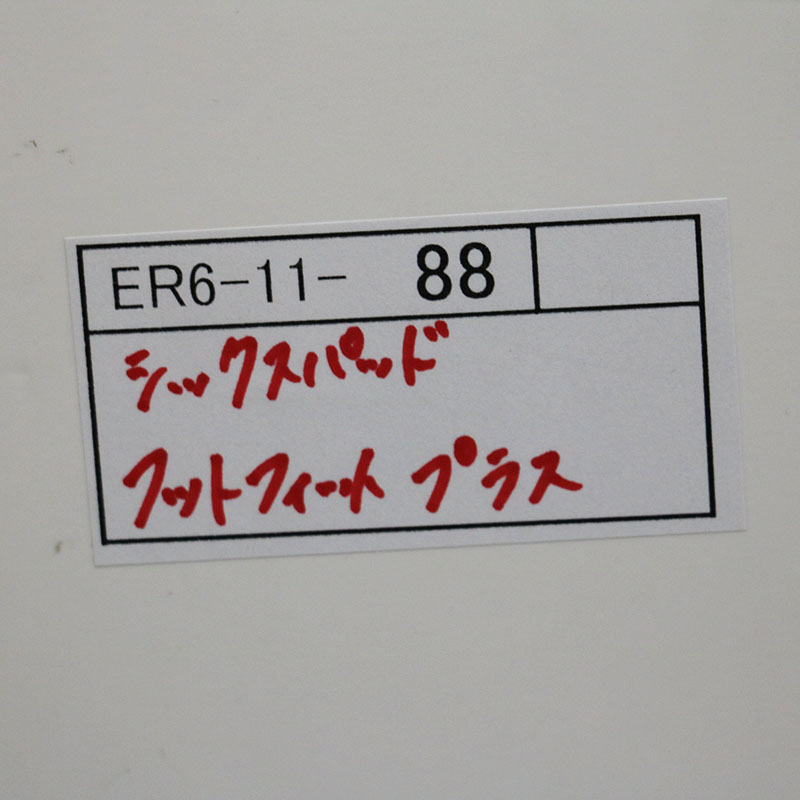 ER6-11- 88
シックスパッド
フットフィット プラス